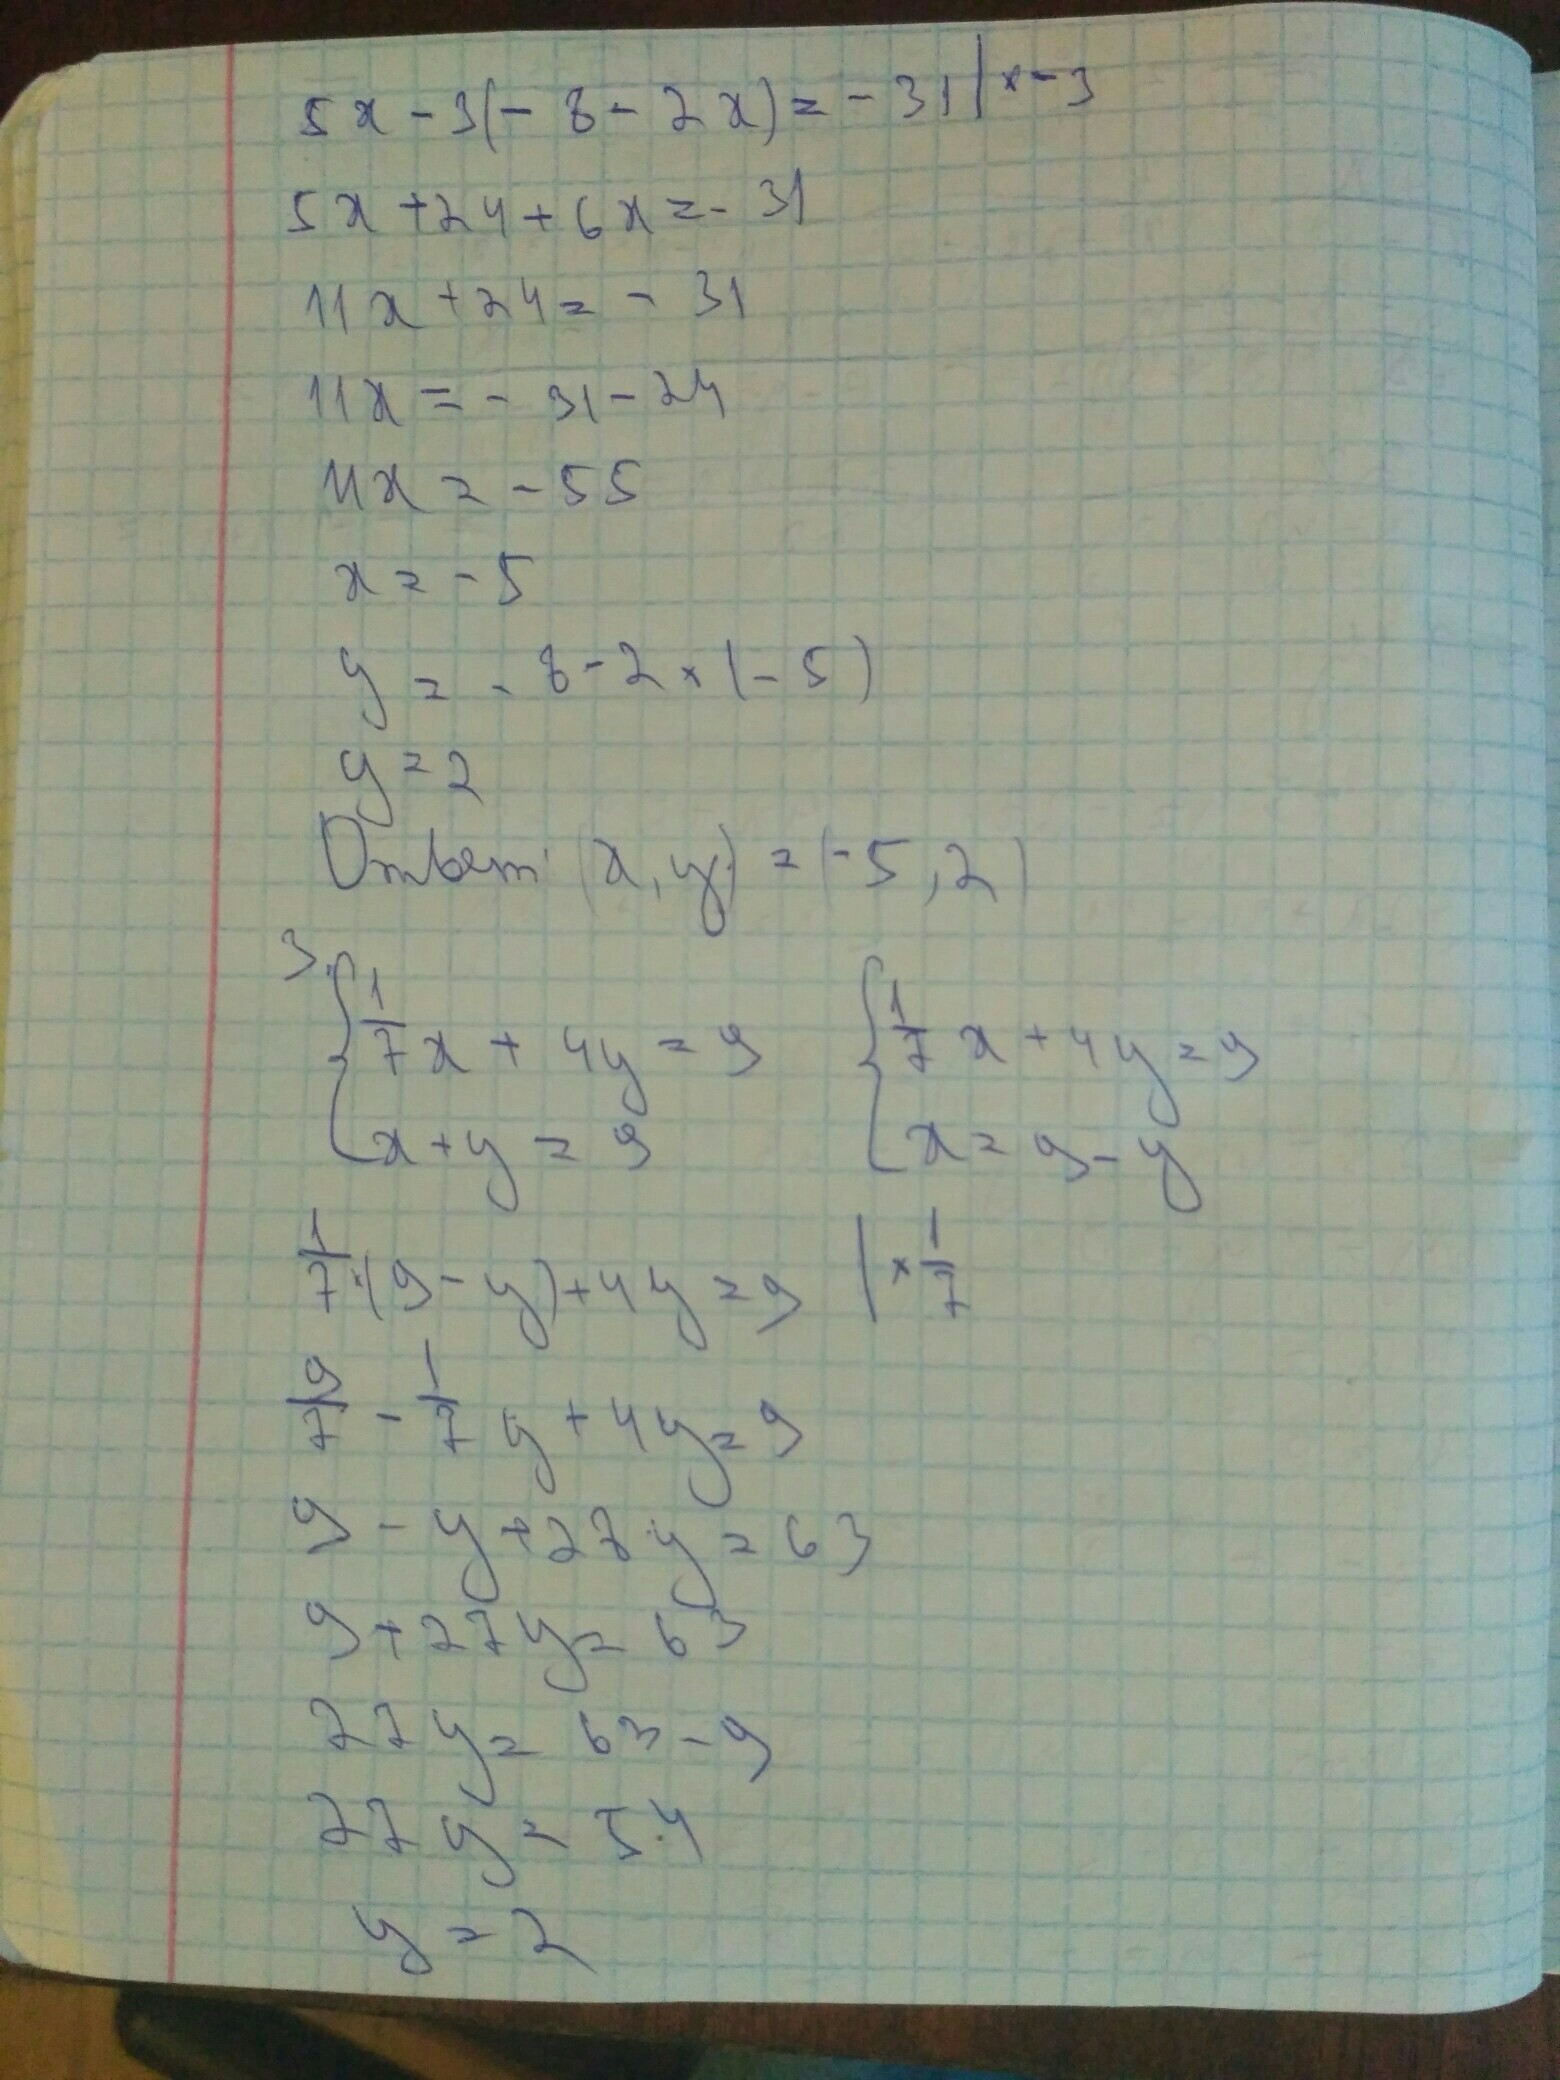 5x - 3(- 8 - 2x) = - 31 | × - 3
5x + 24 + 6x = - 31
11x + 24 = - 31
11x = - 31 - 24
11x = - 55
x = - 5
y = - 8 - 2 × (- 5)
y = 2
Ответ: (x, y) = (- 5, 2)
3. { 1/7 x + 4y = 9 { 1/7 x + 4y = 9
x + y = 9 x = 9 - y
1/7 · (9 - y) + 4y = 9 | × 1/7
9/7 - 1/7 y + 4y = 9
9 - y + 28y = 63
9 + 27y = 63
27y = 63 - 9
27y = 54
y = 2